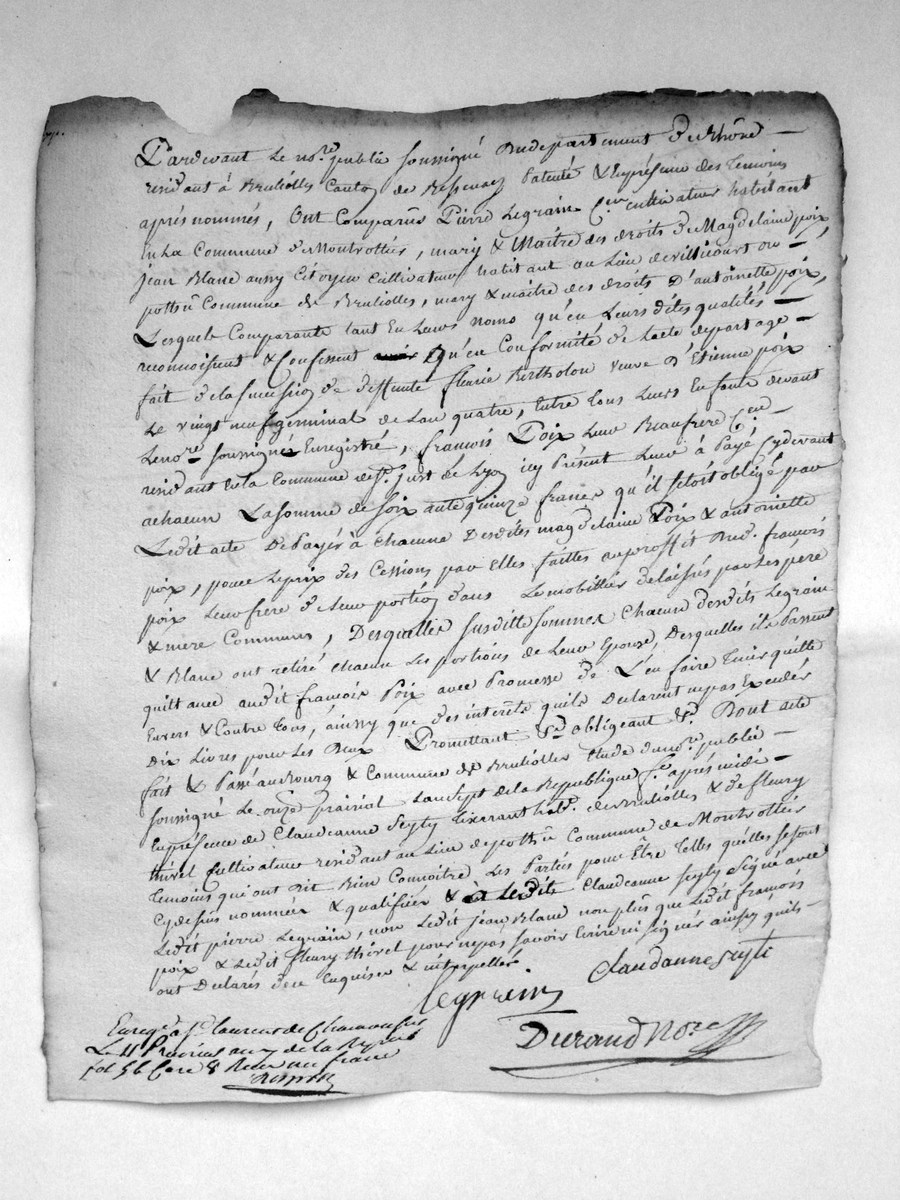 Pardevant Le no.re public soussigné Audepartement du Rhône
residant à Bruliolles Canton de Bessenay Patenté & Enprésence des Temoins
aprés nommés, Ont Comparûs Pierre Legrain C.en cultivateur habitant
En La Commune de Montrottier, mary & Maître des droits de Magdelaine poix
jean Blanc aussy Citoyen Cultivateur habitant au Lieu de
Commune de Brulliolles, mary & maître des droits D'antoinette poix,
Lesquels Comparants tant En Leurs Noms qu'En Leurs dites qualités
reconnoissent & Confessent qu'en Conformité de l'acte departage
fait de la succession de deffunte fleurie Bertholon veuve d'Etienne poix
Le vingt neuf germinal de L'an quatre, Entre Tous Leurs Enfants devant
Le no.re soussigné Enregistré, françois Poix Leur Beaufrere C.en
residant En La Commune de S.t just de Lyon icy Présent Leur à Payé Cydevant
achacun La somme de soixante quinze francs qu'il setoit obligé par
Ledit acte De Payer à Chacune Desdites magdelaine Poix & antoinette
poix, pour Le prix des Cessions par Elles faittes auproffit Dud. françois
poix Leur frere de Leur portion dans Le mobillier delaissés par Les pere
& mere Communs, Desquelles susditte sommes Chacun desdits Legrain
& Blanc ont retiré Chacun Les portions de Leur Epouse, Desquelles ils Passent
quittance audit françois Poix avec Promesse de L'en faire Tenir quitte
Envers & Contre Tous, ainsy que des interêts quils Declarent nepas Exceder
Dix Livres pour Les Deux Promettant &.a obligeant &.a Dont acte
fait & Passé au Bourg & Commune de Brulliolles Etude du no.re public
soussigné Le onze prairial L'an sept de la Republique f.se aprés midi
Enprésence de Claudeanne Seyty Tixerrant hab.t de Brulliolles & de fleury
thivel Cultivateur residant au Lieu de Commune de Montrottier
Temoins qui ont Dit Bien Connoitre Les Parties pour Etre Telles qu'elles se sont
Cy dessus nommées & qualifiées & Ledit Claudeanne Seyty Signé avec
Ledit pierre Legrain, non Ledit Jean Blanc non plus que Ledit françois
poix & Ledit fleury thivel pour nepas savoir Ecrire ni signer ainsy quils
ont Declarés Dece Enquises & interpellés
Claudanne seyti
legrain
Durand No.re
Enreg.é a S.t Laurent de Chamousset
Le Prairial an 7 de la Repub
fol 56 Case 8 Recu un franc